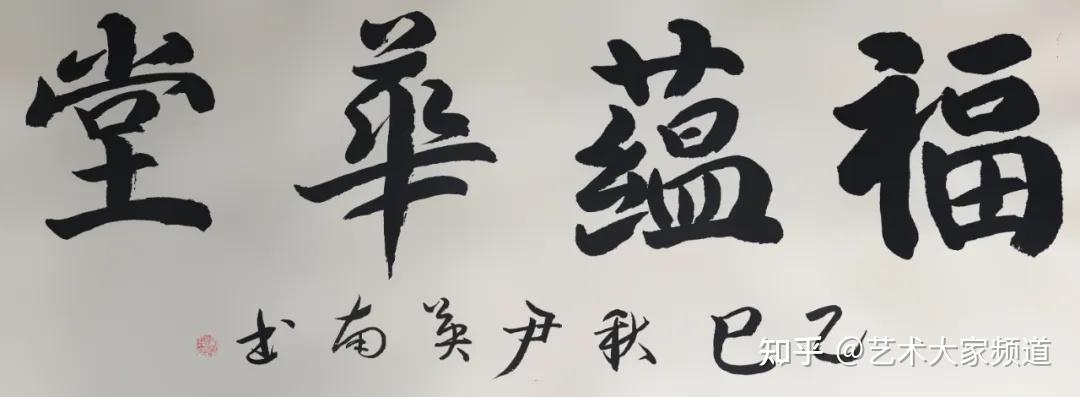 福蕴華堂
乙巳秋尹英南书
知乎 @艺术大家频道